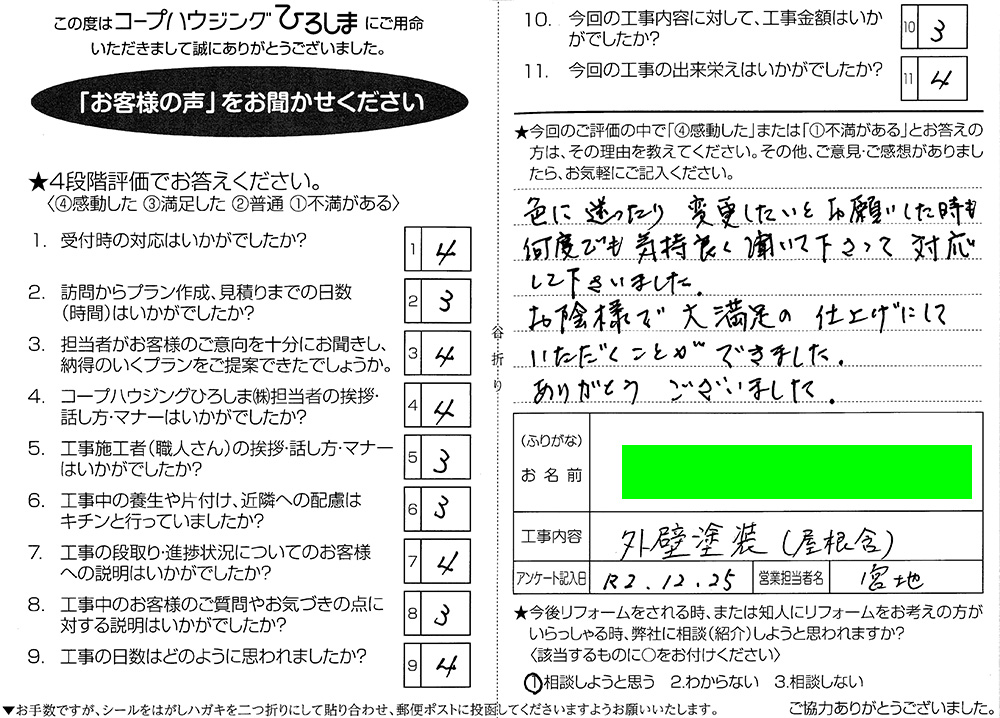 この度はコープハウジングひろしまにご用命
いただきまして誠にありがとうございました。
「お客様の声」をお聞かせください
★4段階評価でお答えください。
〈④感動した ③満足した ②普通 ①不満がある〉
1. 受付時の対応はいかがでしたか?
1 4
2. 訪問からプラン作成、見積りまでの日数
(時間)はいかがでしたか?
2 3
3. 担当者がお客様のご意向を十分にお聞きし、
納得のいくプランをご提案できたでしょうか。
3 4
4. コープハウジングひろしま㈱担当者の挨拶・
話し方・マナーはいかがでしたか?
4 4
5. 工事施工者(職人さん)の挨拶・話し方・マナー
はいかがでしたか?
5 3
6. 工事中の養生や片付け、近隣への配慮は
キチンと行っていましたか?
6 3
7. 工事の段取り・進捗状況についてのお客様
への説明はいかがでしたか?
7 4
8. 工事中のお客様のご質問やお気づきの点に
対する説明はいかがでしたか?
8 3
9. 工事の日数はどのように思われましたか?
9 4
▼お手数ですが、シールをはがしハガキを二つ折りにして貼り合わせ、郵便ポストに投函してくださいますようお願いいたします。
谷折り
10. 今回の工事内容に対して、工事金額はいか
がでしたか?
10 3
11. 今回の工事の出来栄えはいかがでしたか?
11 4
★今回のご評価の中で「④感動した」または「①不満がある」とお答えの
方は、その理由を教えてください。その他、ご意見・ご感想がありまし
たら、お気軽にご記入ください。
色に迷ったり 変更したいとお願いした時も
何度でも気持良く聞いて下さって 対応
して下さいました。
お陰様で 大満足の 仕上げにして
いただくことが できました。
ありがとう ございました。
(ふりがな)
お名前
工事内容 外壁塗装(屋根含)
アンケート記入日 R2.12.25 営業担当者名 宮地
★今後リフォームをされる時、または知人にリフォームをお考えの方が
いらっしゃる時、弊社に相談(紹介)しようと思われますか?
〈該当するものに○をお付けください〉
1.相談しようと思う 2.わからない 3.相談しない
ご協力ありがとうございました。